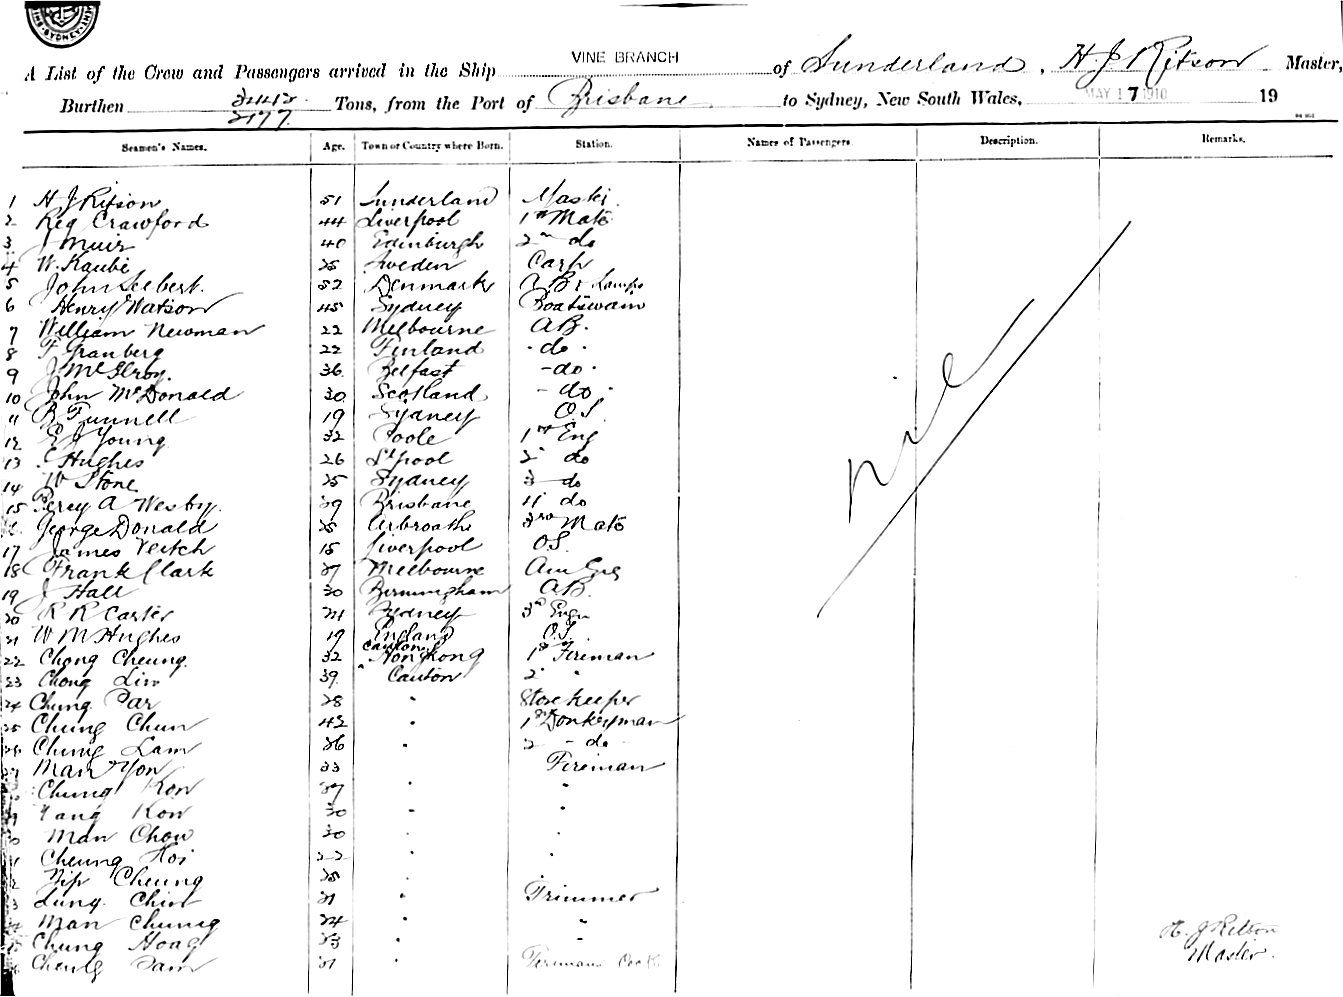 SYDNEY
VINE BRANCH
A List of the Crew and Passengers arrived in the Ship of Sunderland, H. J. Ritson Master,
Burthen Tons, from the Port of Brisbane to Sydney, New South Wales, MAY 17 1910 19
2177
Seamen's Names. Age. Town or Country where Born. Station. Names of Passengers Description. Remarks.
1 H J Ritson 51 Sunderland
2 Reg Crawford 44 Liverpool 1st Mate
3 J Muir 40 Edinburgh 2nd do
4 W. Kaube 25 Sweden Carp
5 John Seebert. 52 Denmark AB & Lamps
6 Henry Watson 45 Sydney Boatswain
7 William Newman 22 Melbourne AB.
8 F Granberg 22 Finland - do -
9 J McIlroy. 36 Belfast - do -
10 John McDonald 30 Scotland - do -
11 B Funnell 19 Sydney O.S.
12 E J Young 32 Poole 1st Eng
13 Hughes 26 L'pool 2 do
14 W Stone 25 Sydney 3 do
15 Percy A Wesby. 29 Brisbane 4 do
George Donald Arbroath 3rd Mate
17 James Veitch 15 Liverpool OS
18 Frank Clark Melbourne
19 J Hall 30 Birmingham AB.
20 R R Carter Sydney 3rd Engr
21 W M Hughes 19 England O.S.
22 Chong Cheung. 32 Canton Hongkong 1st Fireman
23 Chong Lin 39 " Canton 2 "
24 Chung Par 28 " Storekeeper
25 Chung Chun 42 " 1st Donkeyman
26 Chung Lam 36 " 2 - do -
27 Man Yon 33 Fireman
Chung Kon " "
29 Yang Kow 30 " "
30 Man Chow 30 " "
Cheung Hoi 22 " "
Yip Cheung 25 "
Lung Chin " Trimmer
Man Chung 24 " "
Chung Hoag 33 " "
Cheung Sam " Firemans Cook
Nil
H. J Ritson
Master.